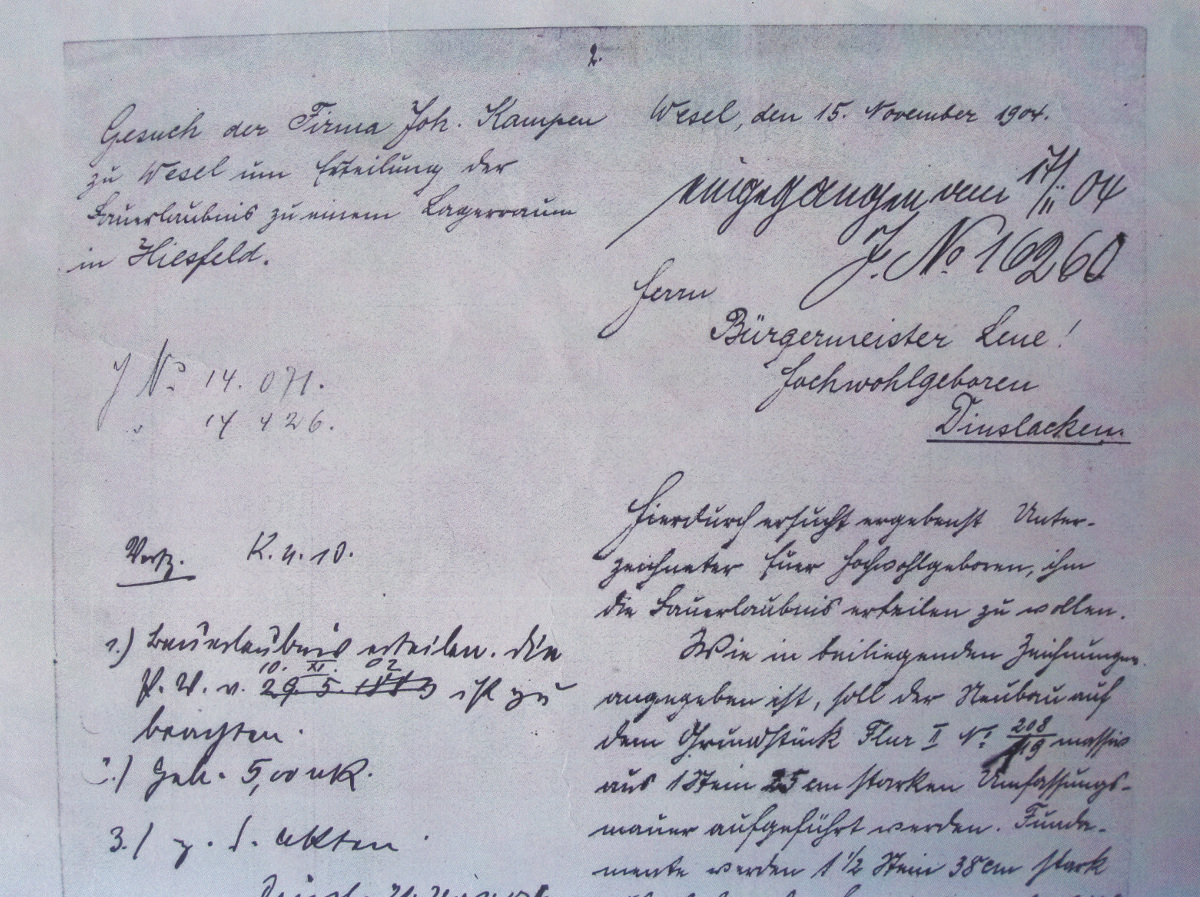 2.
Gesuch der Firma Joh. Kampen
zu Wesel um Erteilung der
Bauerlaubnis zu einem Lagerraum
in Hiesfeld.
J No 14.071.
" 14 426.
Wesel, den 15. November 1904.
eingegangen am 17/11 04
J. No 16260
Herrn
Bürgermeister Lene!
Hochwohlgeboren
Dinslacken
K. H.
1.) Bauerlaubnis erteilen. Die
P. V. v. 10. XI. 02 ist zu
beachten.
2.) Geb. 5,00 MK.
3.) z. d. Akten
Hierdurch ersucht ergebenst Unter-
zeichneter Euer Hochwohlgeboren, ihm
die Bauerlaubnis erteilen zu wollen.
Wie in beiliegenden Zeichnungen
angegeben ist, soll der Neubau auf
dem Grundstück Flur II No. 208/119 massiv
aus 1 Stein 25 cm starken Umfassungs-
mauer aufgeführt werden. Funda-
mente werden 1 1/2 Stein 38 cm stark